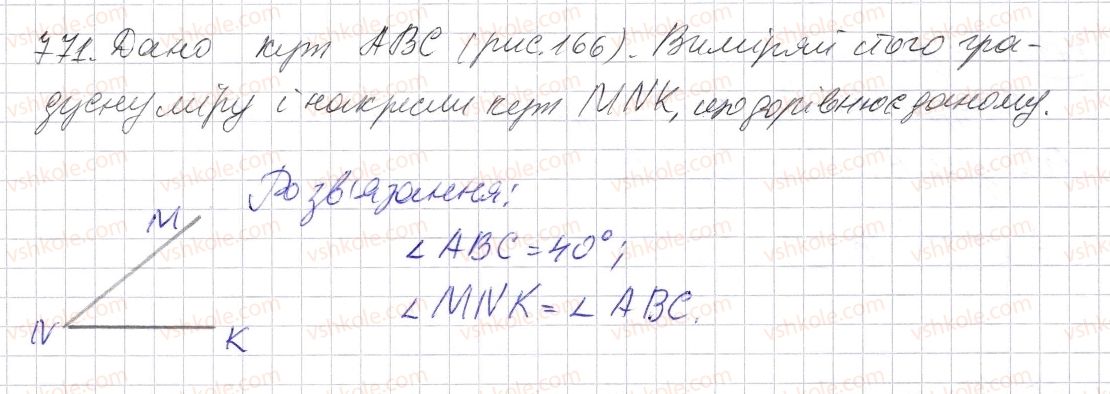 771. Дано кут ABC (рис. 166). Виміряй його гра-
дусну міру і накресли кут MNK, що дорівнює даному.
Розв'язання:
M
∠ABC = 40°;
∠MNK = ∠ABC.
N
K